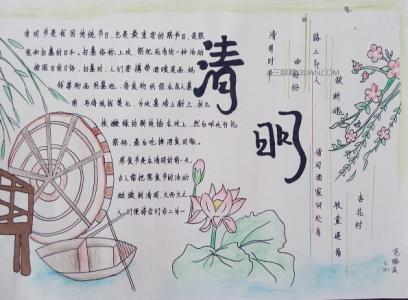 清明节是我国传统节日,也是最重要的祭节日,是祭
祖和扫墓的日子。扫墓俗称上坟,祭祀死者的一种活动
按照旧的习俗,扫墓时,人们要携带酒食果品,纸
钱等物品到墓地,将食物供祭在亲人墓
前,再将纸钱焚化,为坟墓培上新土,折几
枝嫩绿的新枝插在坟上,然后叩头行礼
祭拜,最后吃掉酒食回家。
寒食节是在清明的前一天,
古人常把寒食节的活动
延续到清明,久而久之
人们便将它们合二为一
清明
清明时节
雨纷纷
路上行人
欲断魂
借问酒家何处有
牧童遥指
杏花村